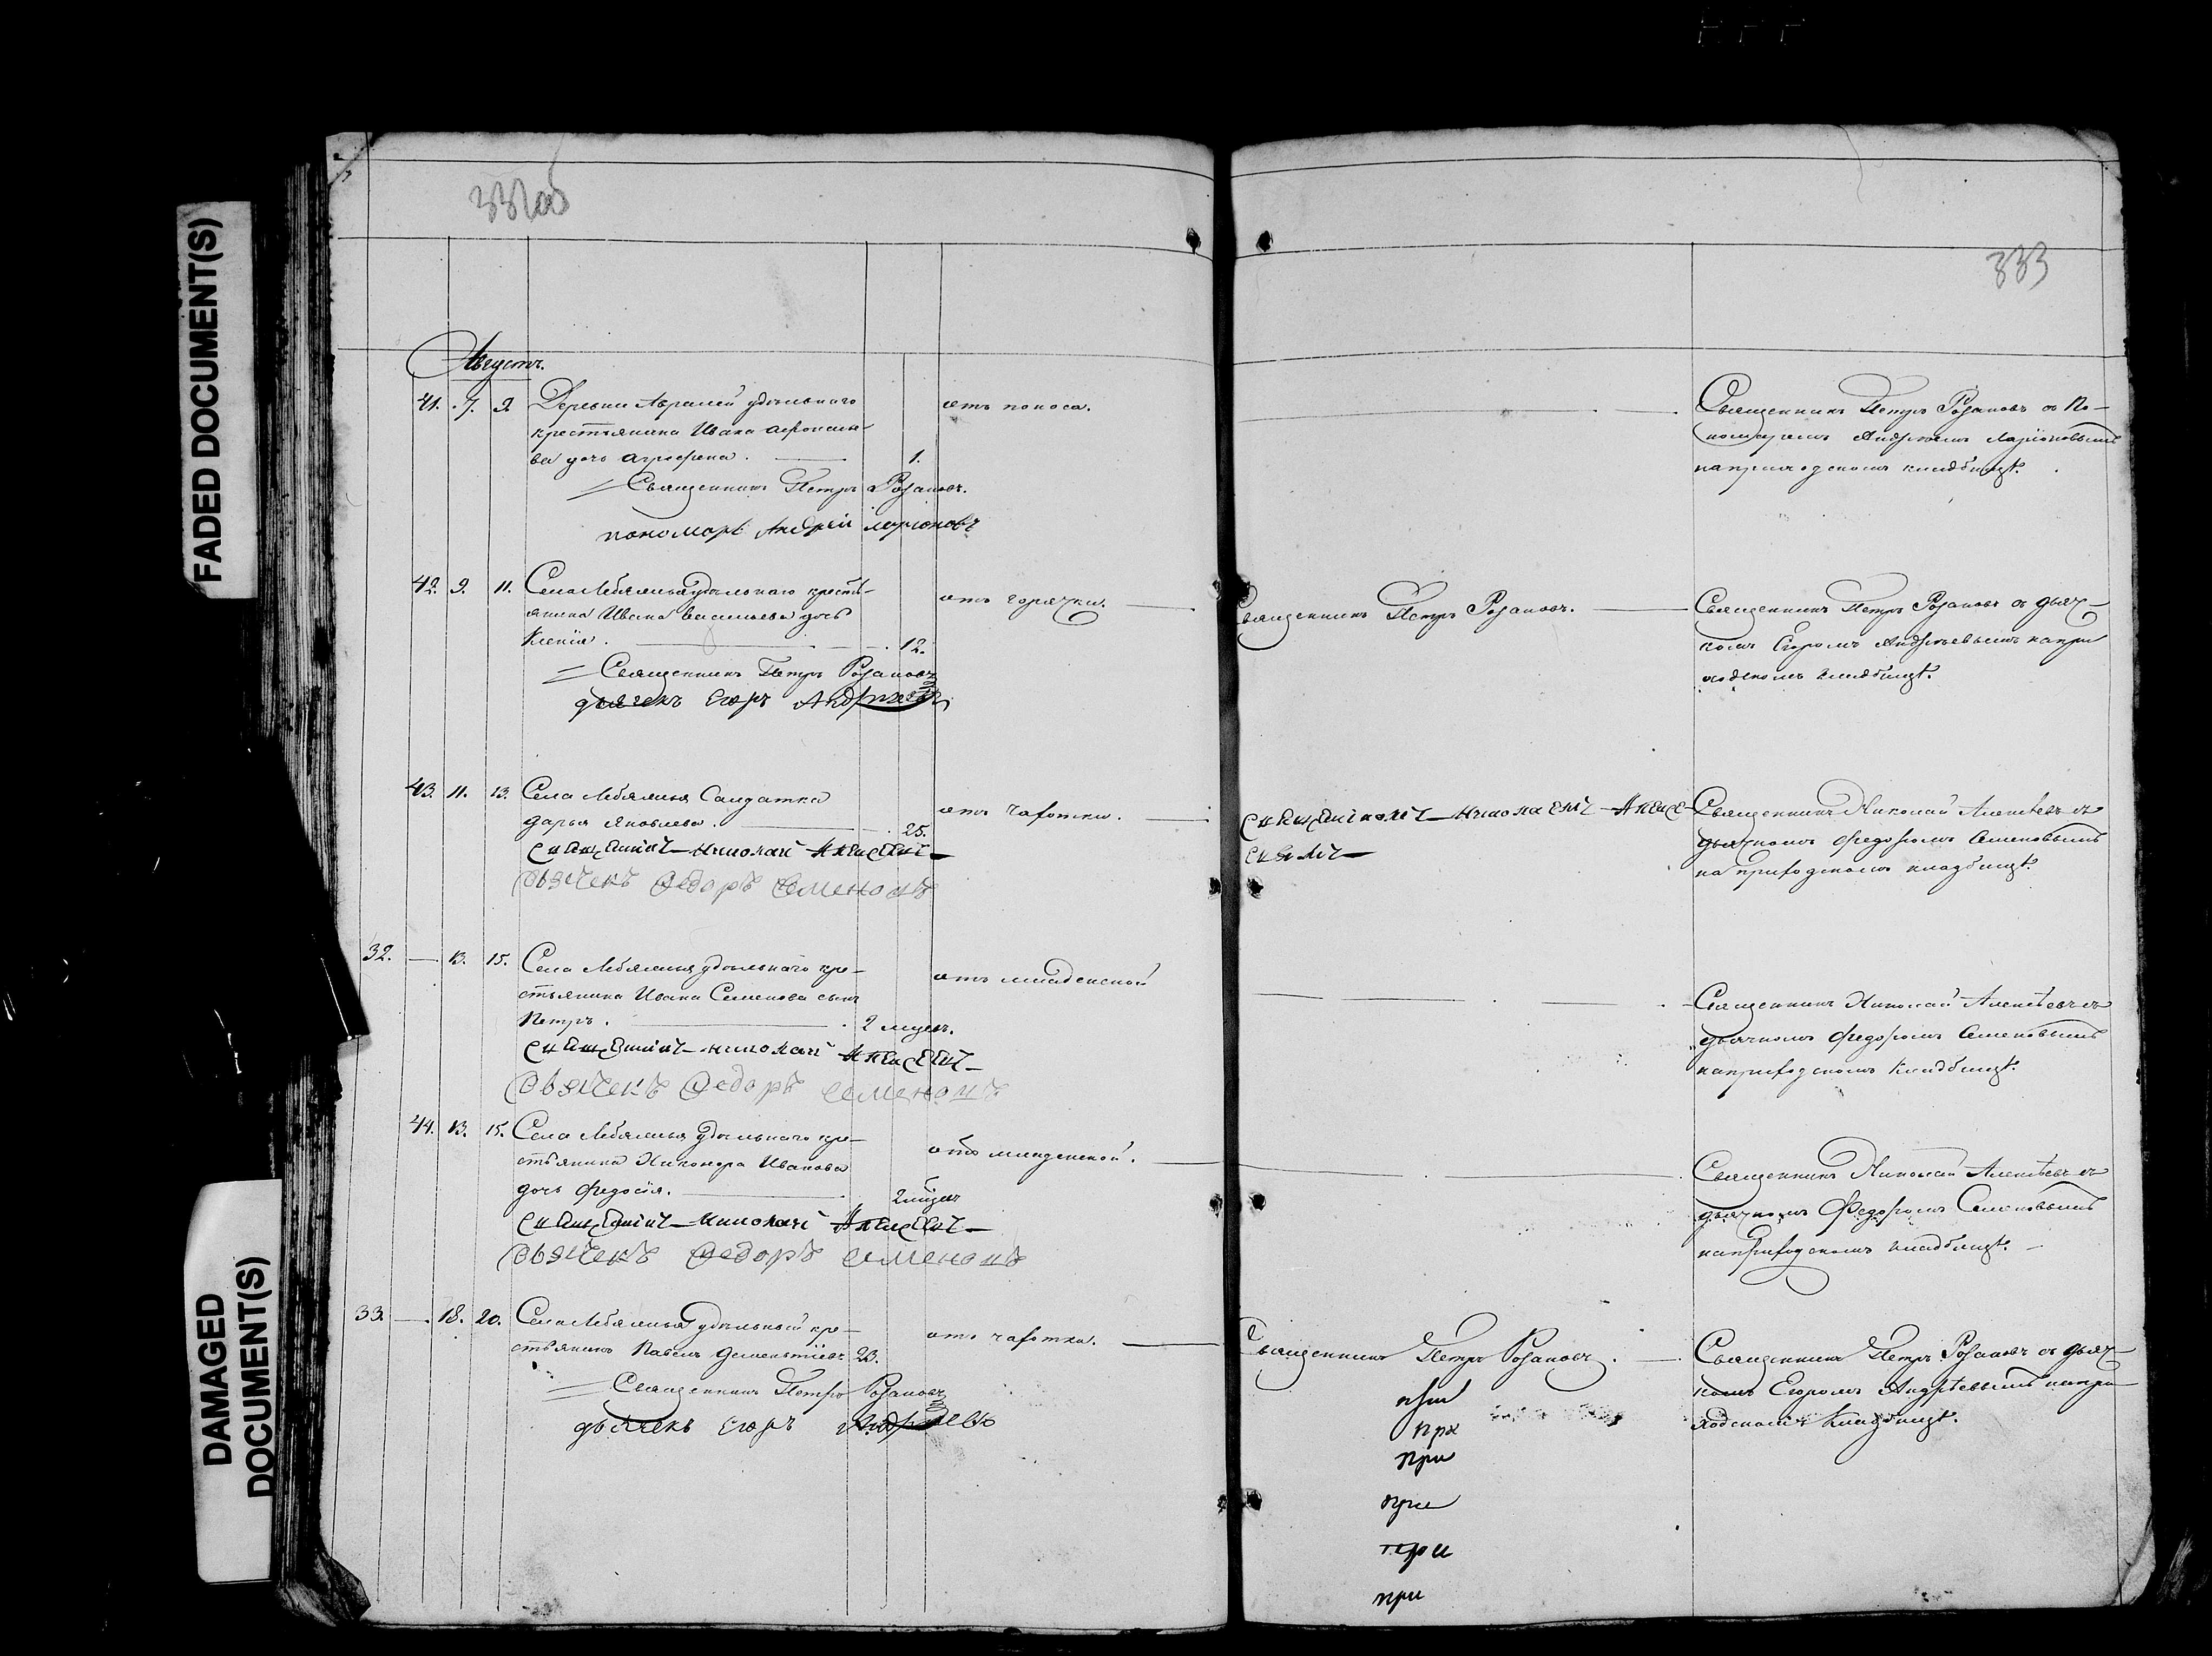 332об
333
Августъ.
41. 7. 9. Деревни Авралей удѣльнаго
крестьянина Ивана
ва дочь Агрофена. 1. отъ поноса.
Священникъ Петръ Розановъ.
пономарь Андрей Ларіоновъ
Священникъ Петръ Розановъ съ По-
номаремъ Андреемъ Ларіоновымъ
на приходскомъ кладбищѣ.
42. 9. 11. Села Лебяжья удѣльнаго кресть-
янина Ивана Васильева дочь
Ксенія. 12. отъ горячки.
Священникъ Петръ Розановъ
дьячекъ Егоръ Андреевъ
Священникъ Петръ Розановъ.
Священникъ Петръ Розановъ съ дьяч-
комъ Егоромъ Андрѣевымъ на при
ходскомъ кладбищѣ.
43. 11. 13. Села Лебяжья Солдатка
Дарья Яковлева. 25. отъ чахотки.
священникъ Николай Алексеевъ
дьячекъ Федоръ Семеновъ
Священникъ Николай Алексѣевъ съ
дьячкомъ Федоромъ Семеновымъ
на приходскомъ кладбищѣ.
32. — 13. 15. Села Лебяжья удѣльнаго кре-
стьянина Ивана Семенова сынъ
Петръ. 2 мцевъ. отъ младенской
священникъ Николай Алексеевъ
дьячекъ Федоръ Семеновъ
Священникъ Николай Алексѣевъ съ
дьячкомъ Федоромъ Семеновымъ
на приходскомъ кладбищѣ.
44. 13. 15. Села Лебяжья удѣльнаго кре-
стьянина Никонора Иванова
дочь Федосія. 2 мцевъ отъ младенской.
священникъ Николай Алексеевъ
дьячекъ Федоръ Семеновъ
Священникъ Николай Алексѣевъ съ
дьячкомъ Федоромъ Семеновымъ
на приходскомъ кладбищѣ.
33. — 18. 20. Села Лебяжья удѣльный кре-
стьянинъ Павелъ Дементіевъ 23. отъ чахотки.
Священникъ Петръ Розановъ
дьячекъ Егоръ Андреевъ
Священникъ Петръ Розановъ.
Священникъ Петръ Розановъ съ дьяч-
комъ Егоромъ Андрѣевымъ на при-
ходскомъ кладбищѣ.
при
при
при
при
при
FADED DOCUMENT(S)
DAMAGED
DOCUMENT(S)